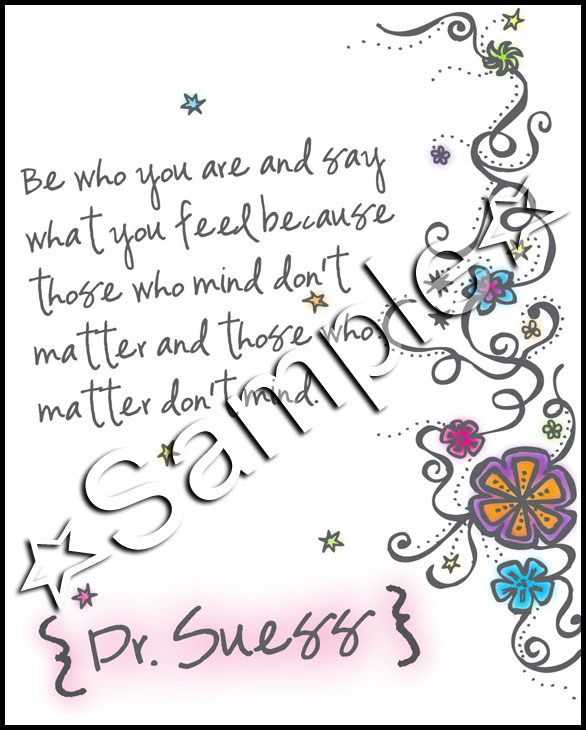 Be who you are and say
what you feel because
those who mind don't
matter and those who
matter don't mind.
☆Sample☆
{Dr. Suess}